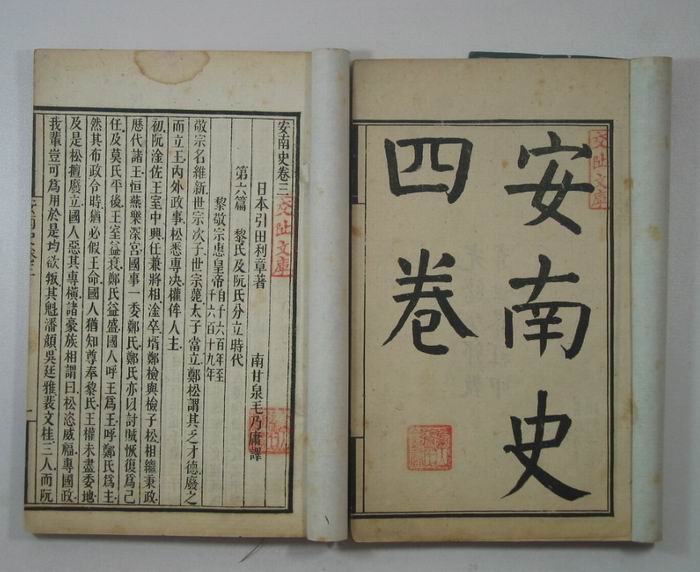 安南史
四卷
交趾文庫
安南史卷三
交趾文庫
日本引田利章著
南甘泉毛乃庸譯
第六篇　黎氏及阮氏分立時代
黎敬宗惠皇帝自千六百年至千六百十九年
敬宗名維新世宗次子世宗薨太子當立鄭松謂其乏才德廢之
而立王內外政事松悉專決權侔人主
初阮淦佐王室中興任兼將相淦卒壻鄭檢與檢子松相繼秉政
歷代諸王恒燕樂深宮國事一委鄭氏鄭氏亦以討賊恢復爲己
任及莫氏平後王室益衰鄭氏益盛國人呼王爲王呼鄭氏爲主
然其布政令時猶必假王命國人猶知尊奉黎氏王權未盡委地
及是松擅廢立國人惡其專橫諸豪族相謂曰松恣威福專國政
我輩豈可爲用於是均欲叛其魁潘顏吳廷雅裴文桂三人而阮